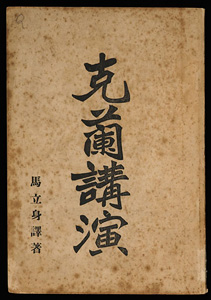 克蘭講演
馬立身譯著